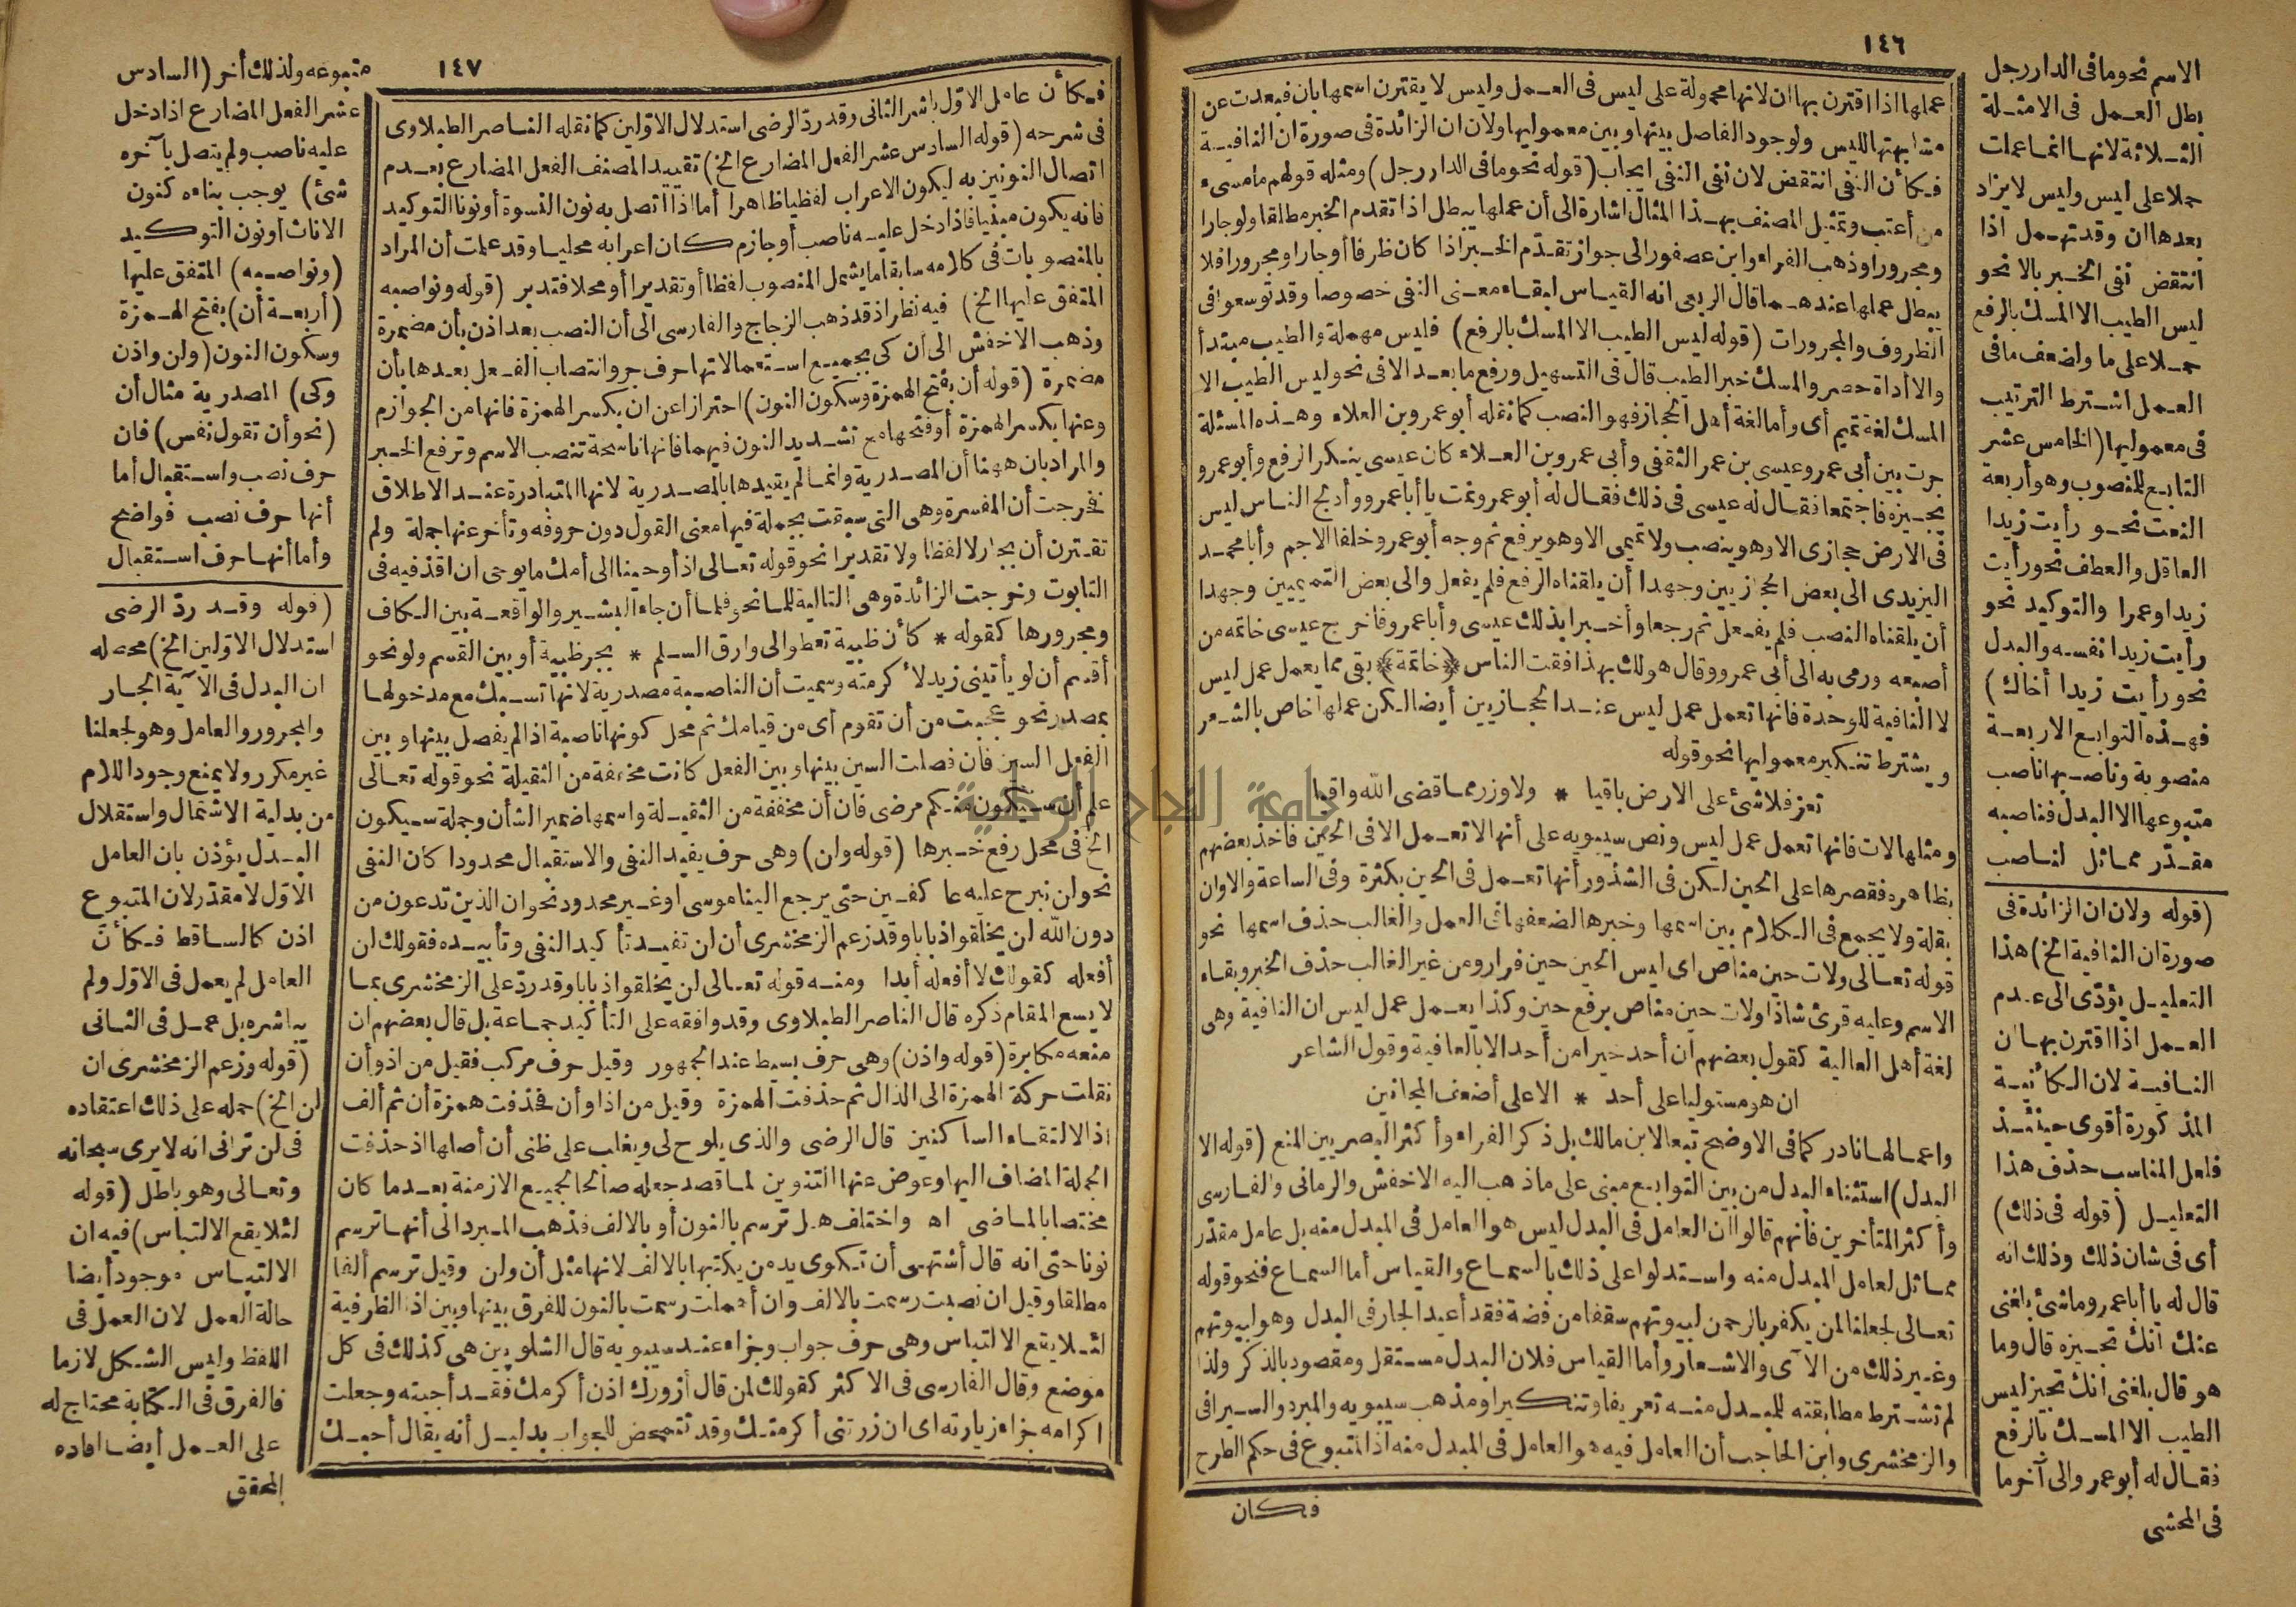 ١٤٦
الاسم نحو ما فى الدار رجل
بطل العمل فى الامثلة
الثلاثة لانها انما عملت
حملا على ليس وليس لا يزاد
بعدها ان وقد تهمل اذا
انتقض نفى الخبر بالا نحو
ليس الطيب الا المسك بالرفع
حملا على ما واضعف ما فى
العمل اشترط الترتيب
فى معموليها (الخامس عشر
التابع للمنصوب وهو أربعة
النعت نحو رأيت زيدا
العاقل والعطف نحو رأيت
زيدا وعمرا والتوكيد نحو
رأيت زيدا نفسه والبدل
نحو رأيت زيدا أخاك)
فهذه التوابع الاربعة
منصوبة وناصبها ناصب
متبوعها الا البدل فناصبه
مقدر مماثل لناصب
عملها اذا اقترن بها ان لانها محمولة على ليس فى العمل وليس لا يقترن اسمها بان فبعدت عن
مشابهتها لليس ولوجود الفاصل بينها وبين معموليها ولان ان الزائدة فى صورة ان النافية
فكأن النفى انتقض لان نفى النفى ايجاب (قوله نحو ما فى الدار رجل) ومثله قولهم ما مسىء
من أعتب وتمثيل المصنف بهذا المثال اشارة الى أن عملها يبطل اذا تقدم الخبر مطلقا ولو جارا
ومجرورا وذهب الفراء وابن عصفور الى جواز تقدم الخبر اذا كان ظرفا أو جارا ومجرورا فلا
يبطل عملها عندهما قال الربعى انه القياس لبقاء معنى النفى خصوصا وقد توسعوا فى
الظروف والمجرورات (قوله ليس الطيب الا المسك بالرفع) فليس مهملة والطيب مبتدأ
والا أداة حصر والمسك خبر الطيب قال فى التسهيل ورفع ما بعد الا فى نحو ليس الطيب الا
المسك لغة تميم أى وأما لغة أهل الحجاز فهو النصب كما نقله أبو عمرو بن العلاء وهذه المسئلة
جرت بين أبى عمرو وعيسى بن عمر الثقفى وأبى عمرو بن العلاء كان عيسى ينكر الرفع وأبو عمرو
يجيزه فاجتمعا فقال له عيسى فى ذلك فقال له أبو عمرو نمت يا أبا عمرو وأدلج الناس ليس
فى الارض حجازى الا وهو ينصب ولا تميمى الا وهو يرفع ثم وجه أبو عمرو خلفا الاحمر وأبا محمد
اليزيدى الى بعض الحجازيين وجهدا أن يلقناه الرفع فلم يفعل والى بعض التميميين وجهدا
أن يلقناه النصب فلم يفعل ثم رجعا وأخبرا بذلك عيسى وأبا عمرو فأخرج عيسى خاتمه من
أصبعه ورمى به الى أبى عمرو وقال هو لك بهذا فقت الناس (خاتمة) بقى مما يعمل عمل ليس
لا النافية للوحدة فانها تعمل عمل ليس عند الحجازيين أيضا لكن عملها خاص بالشعر
ويشترط تنكير معموليها نحو قوله
تعز فلا شئ على الارض باقيا * ولا وزر مما قضى الله واقيا
ومثلها لات فانها تعمل عمل ليس ونص سيبويه على أنها لا تعمل الا فى الحين فأخذ بعضهم
بظاهره فقصرها على الحين لكن فى الشذور أنها تعمل فى الحين بكثرة وفى الساعة والاوان
بقلة ولا يجمع فى الكلام بين اسمها وخبرها لضعفها فى العمل والغالب حذف اسمها نحو
قوله تعالى ولات حين مناص اى ليس الحين حين فرار ومن غير الغالب حذف الخبر وبقاء
الاسم وعليه قرئ شاذا ولات حين مناص برفع حين وكذا يعمل عمل ليس ان النافية وهى
لغة أهل العالية كقول بعضهم ان أحد خيرا من أحد الا بالعافية وقول الشاعر
ان هو مستوليا على أحد * الا على أضعف المجانين
واعمالها نادر كما فى الاوضح تبعا لابن مالك بل ذكر الفراء وأكثر البصريين المنع (قوله الا
البدل) استثناء البدل من بين التوابع مبنى على ما ذهب اليه الاخفش والرمانى والفارسى
وأكثر المتأخرين فانهم قالوا ان العامل فى البدل ليس هو العامل فى المبدل منه بل عامل مقدر
مماثل لعامل المبدل منه واستدلوا على ذلك بالسماع والقياس أما السماع فنحو قوله
تعالى لجعلنا لمن يكفر بالرحمن لبيوتهم سقفا من فضة فقد أعيد الجار فى البدل وهو لبيوتهم
وغير ذلك من الآى والاشعار وأما القياس فلان البدل مستقل ومقصود بالذكر ولذا
لم تشترط مطابقته للمبدل منه تعريفا وتنكيرا ومذهب سيبويه والمبرد والسيرافى
والزمخشرى وابن الحاجب أن العامل فيه هو العامل فى المبدل منه اذ المتبوع فى حكم الطرح
فكان
(قوله ولان ان الزائدة فى
صورة ان النافية الخ) هذا
التعليل يؤدى الى عدم
العمل اذا اقترن بها ان
النافية لان الكأنية
المذكورة أقوى حينئذ
فلعل المناسب حذف هذا
التعليل (قوله فى ذلك)
أى فى شان ذلك وذلك انه
قال له يا أبا عمرو ما شئ بلغنى
عنك انك تجيزه قال وما
هو قال بلغنى انك تجيز ليس
الطيب الا المسك بالرفع
فقال له أبو عمرو الى آخر ما
فى المحشى
١٤٧
متبوعه ولذلك أخر (السادس
عشر الفعل المضارع اذا دخل
عليه ناصب ولم يتصل بآخره
شئ) يوجب بناءه كنون
الاناث أو نون التوكيد
(ونواصبه) المتفق عليها
(أربعة أن) بفتح الهمزة
وسكون النون (ولن واذن
وكى) المصدرية مثال أن
(نحو أن تقول نفس) فان
حرف نصب واستقبال أما
أنها حرف نصب فواضح
وأما أنها حرف استقبال
فكأن عامل الاول باشر الثانى وقد رد الرضى استدلال الاولين كما نقله الناصر الطبلاوى
فى شرحه (قوله السادس عشر الفعل المضارع الخ) تقييد المصنف الفعل المضارع بعدم
اتصال النونين به ليكون الاعراب لفظيا ظاهرا أما اذا اتصل به نون النسوة أو نونا التوكيد
فانه يكون مبنيا فاذا دخل عليه ناصب أو جازم كان اعرابه محليا وقد علمت أن المراد
بالمنصوبات فى كلامه سابقا ما يشمل المنصوب لفظا أو تقديرا أو محلا فتدبر (قوله ونواصبه
المتفق عليها الخ) فيه نظر اذ قد ذهب الزجاج والفارسى الى أن النصب بعد اذن بأن مضمرة
وذهب الاخفش الى أن كى بجميع استعمالاتها حرف جر وانتصاب الفعل بعدها بأن
مضمرة (قوله أن بفتح الهمزة وسكون النون) احترازا عن ان بكسر الهمزة فانها من الجوازم
وعنها بكسر الهمزة أو فتحها مع تشديد النون فيهما فانها ناسخة تنصب الاسم وترفع الخبر
والمراد بان ههنا أن المصدرية وانما لم يقيدها بالمصدرية لانها المتبادرة عند الاطلاق
فخرجت أن المفسرة وهى التى سبقت بجملة فيها معنى القول دون حروفه وتأخر عنها جملة ولم
تقترن أن بجار لا لفظا ولا تقديرا نحو قوله تعالى اذ أوحينا الى أمك ما يوحى ان اقذفيه فى
التابوت وخرجت الزائدة وهى التالية للما نحو فلما أن جاء البشير والواقعة بين الكاف
ومجرورها كقوله * كأن ظبية تعطو الى وارق السلم * بجر ظبية أو بين القسم ولو نحو
أقسم أن لو يأتينى زيد لأكرمته وسميت أن الناصبة مصدرية لانها تسبك مع مدخولها
بمصدر نحو عجبت من أن تقوم أى من قيامك ثم محل كونها ناصبة اذا لم يفصل بينها وبين
الفعل السين فان فصلت السين بينها وبين الفعل كانت مخففة من الثقيلة نحو قوله تعالى
علم أن سيكون منكم مرضى فان أن مخففة من الثقيلة واسمها ضمير الشأن وجملة سيكون
الخ فى محل رفع خبرها (قوله وان) وهى حرف يفيد النفى والاستقبال محدودا كان النفى
نحو لن نبرح عليه عاكفين حتى يرجع الينا موسى او غير محدود نحو ان الذين تدعون من
دون الله لن يخلقوا ذبابا وقد زعم الزمخشرى أن لن تفيد تأكيد النفى وتأبيده فقولك لن
أفعله كقولك لا أفعله أبدا ومنه قوله تعالى لن يخلقوا ذبابا وقد رد على الزمخشرى بما
لا يسع المقام ذكره قال الناصر الطبلاوى وقد وافقه على التأكيد جماعة بل قال بعضهم ان
منعه مكابرة (قوله واذن) وهى حرف بسيط عند الجمهور وقيل حرف مركب فقيل من اذ وأن
نقلت حركة الهمزة الى الذال ثم حذفت الهمزة وقيل من اذا وأن فحذفت همزة أن ثم ألف
اذا لالتقاء الساكنين قال الرضى والذى يلوح لى ويغلب على ظنى أن أصلها اذ حذفت
الجملة المضاف اليها وعوض عنها التنوين لما قصد جعله صالحا لجميع الازمنة بعد ما كان
مختصا بالماضى اه واختلف هل ترسم بالنون أو بالالف فذهب المبرد الى أنها ترسم
نونا حتى انه قال أشتهى أن تكوى يد من يكتبها بالالف لانها مثل أن ولن وقيل ترسم ألفا
مطلقا وقيل ان نصبت رسمت بالالف وان أهملت رسمت بالنون للفرق بينها وبين اذا الظرفية
لئلا يقع الالتباس وهى حرف جواب وجزاء عند سيبويه قال الشلوبين هى كذلك فى كل
موضع وقال الفارسى فى الاكثر كقولك لمن قال أزورك اذن أكرمك فقد أجبته وجعلت
اكرامه جزاء زيارته اى ان زرتنى أكرمتك وقد تتمحض للجواب بدليل أنه يقال أحبك
(قوله وقد رد الرضى
استدلال الاولين الخ) محصله
ان البدل فى الآية الجار
والمجرور والعامل وهو لجعلنا
غير مكرر ولا يمنع وجود اللام
من بدلية الاشتمال واستقلال
البدل يؤذن بان العامل
الاول لا مقدر لان المتبوع
اذن كالساقط فكأن
العامل لم يعمل فى الاول ولم
يباشره بل عمل فى الثانى
(قوله وزعم الزمخشرى ان
لن الخ) حمله على ذلك اعتقاده
فى لن ترانى انه لا يرى سبحانه
وتعالى وهو باطل (قوله
لئلا يقع الالتباس) فيه ان
الالتباس موجود أيضا
حالة العمل لان العمل فى
اللفظ وليس الشكل لازما
فالفرق فى الكتابة محتاج له
على العمل أيضا افاده
المحقق
جامعة النجاح الوطنية